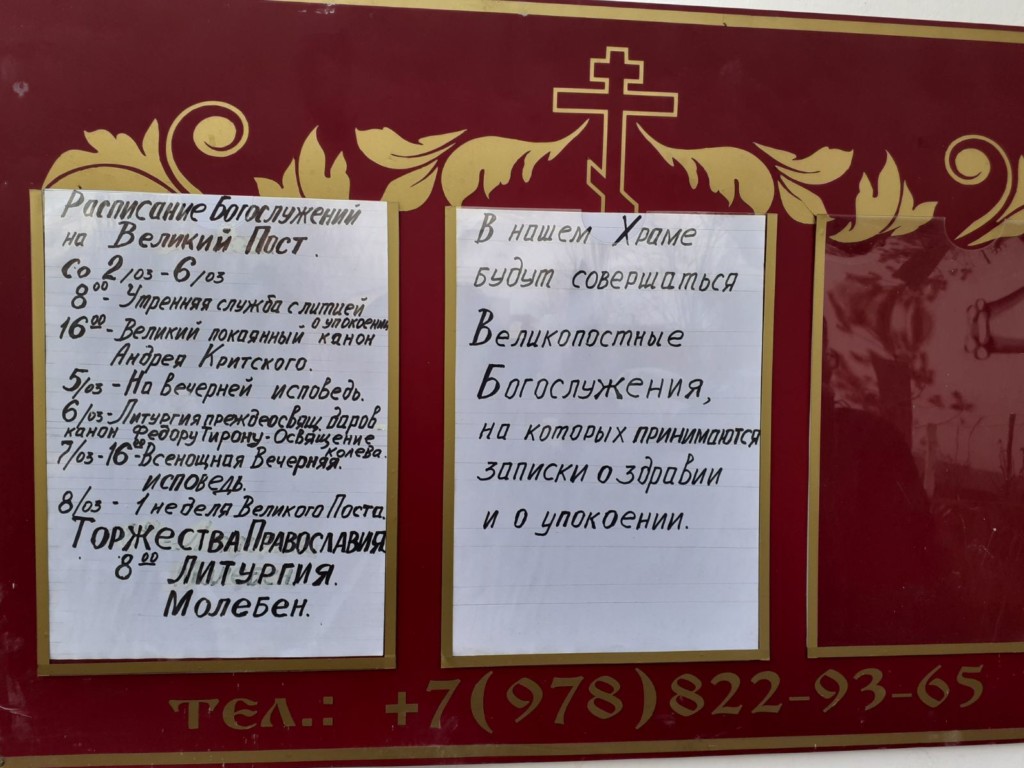 Расписание Богослужений
на Великий Пост.
Со 2/03 - 6/03
8⁰⁰ - Утренняя служба с литией
о упокоении
16⁰⁰ - Великий покаянный канон
Андрея Критского.
5/03 - На вечерней исповедь.
6/03 - Литургия преждеосвящ. даров
канон Федору Тирону - Освящение
колева.
7/03 - 16⁰⁰ - Всенощная Вечерняя.
исповедь.
8/03 - 1 неделя Великого Поста.
Торжества Православия
8⁰⁰ Литургия.
Молебен.
В нашем Храме
будут совершаться
Великопостные
Богослужения,
на которых принимаются
записки о здравии
и о упокоении.
тел.: +7(978)822-93-65